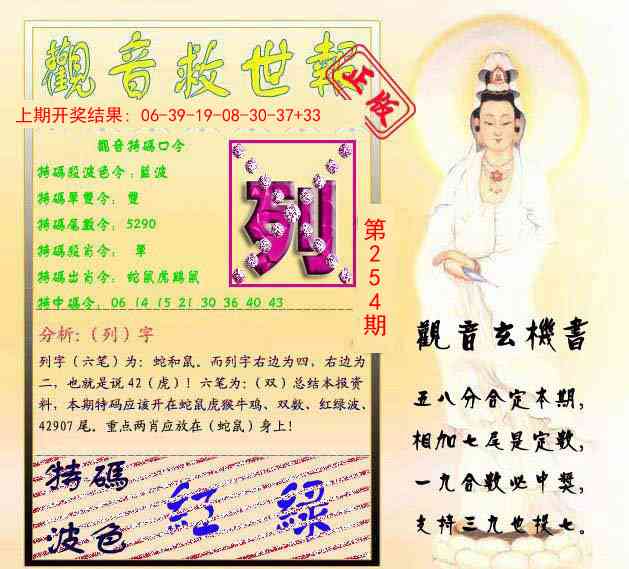 觀音救世報
正版
上期开奖结果：06-39-19-08-30-37+33
觀音特碼口令
特碼段波色令：藍波
特碼單雙令：雙
特碼尾數令：5290
特碼段肖令：單
特碼出肖令：蛇鼠虎鷄鼠
特中碼令：06 14 15 21 30 36 40 43
列
第254期
分析:（列）字
列字（六笔）为：蛇和鼠。而列字右边为四，右边为
二，也就是说42（虎）！六笔为:（双）总结本报资
料，本期特码应该开在蛇鼠虎猴牛鸡、双数、红绿波、
42907尾。重点两肖应放在（蛇鼠）身上！
特碼
波色
紅 綠
觀音玄機書
五八分合定本期，
相加七尾是定数，
一九合数必中獎，
支持三九也提七。